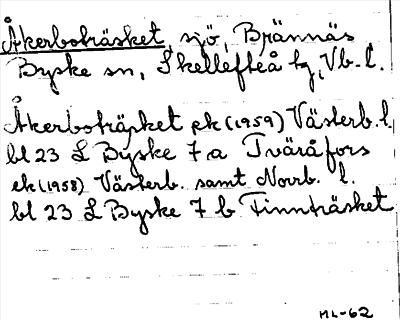 Åkerboträsket, sjö, Brännäs
Byske sn, Skellefteå tg, Vb. l.
Åkerboträsket ek (1959) Västerb. l.
bl 23 L Byske 7 a Tväråfors
ek (1958) Västerb. samt Norrb. l.
bl 23 L Byske 7 b Finnträsket
ML-62